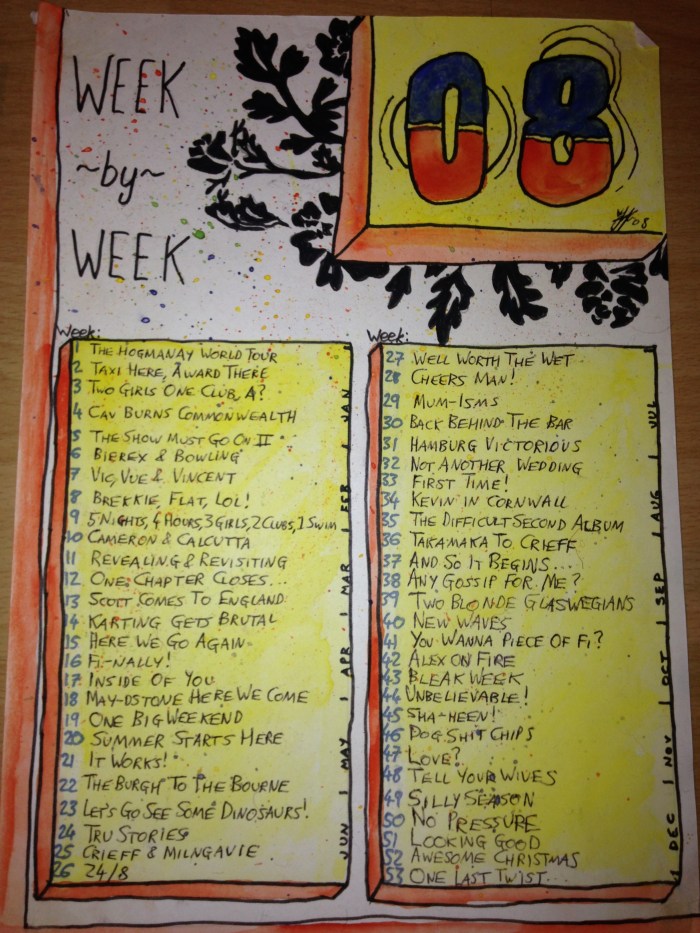 WEEK
~by~
WEEK
08
08
Week:
1 THE HOGMANAY WORLD TOUR
2 TAXI HERE, AWARD THERE
3 TWO GIRLS ONE CLUB, A?
4 CAV BURNS COMMONWEALTH
JAN
5 THE SHOW MUST GO ON II
6 BIEREX & BOWLING
7 VIC, VUE & VINCENT
8 BREKKIE, FLAT, LOL!
FEB
9 5 NIGHTS, 4 HOURS, 3 GIRLS, 2 CLUBS, 1 SWIM
10 CAMERON & CALCUTTA
11 REVEALING & REVISITING
12 ONE CHAPTER CLOSES...
13 SCOTT COMES TO ENGLAND
MAR
14 KARTING GETS BRUTAL
15 HERE WE GO AGAIN
16 FI-NALLY!
17 INSIDE OF YOU
APR
18 MAY-DSTONE HERE WE COME
19 ONE BIG WEEKEND
20 SUMMER STARTS HERE
21 IT WORKS!
MAY
22 THE BURGH TO THE BOURNE
23 LET'S GO SEE SOME DINOSAURS!
24 TRU STORIES
25 CRIEFF & MILNGAVIE
26 24/8
JUN
Week:
27 WELL WORTH THE WET
28 CHEERS MAN!
29 MUM-ISMS
30 BACK BEHIND THE BAR
JUL
31 HAMBURG VICTORIOUS
32 NOT ANOTHER WEDDING
33 FIRST TIME!
34 KEVIN IN CORNWALL
35 THE DIFFICULT SECOND ALBUM
AUG
36 TAKAMAKA TO CRIEFF
37 AND SO IT BEGINS...
38 ANY GOSSIP FOR ME?
39 TWO BLONDE GLASWEGIANS
SEP
40 NEW WAVES
41 YOU WANNA PIECE OF FI?
42 ALEX ON FIRE
43 BLEAK WEEK
OCT
44 UNBELIEVABLE!
45 SHA-HEEN!
46 DOG SHIT CHIPS
47 LOVE?
48 TELL YOUR WIVES
NOV
49 SILLY SEASON
50 NO PRESSURE
51 LOOKING GOOD
52 AWESOME CHRISTMAS
53 ONE LAST TWIST...
DEC